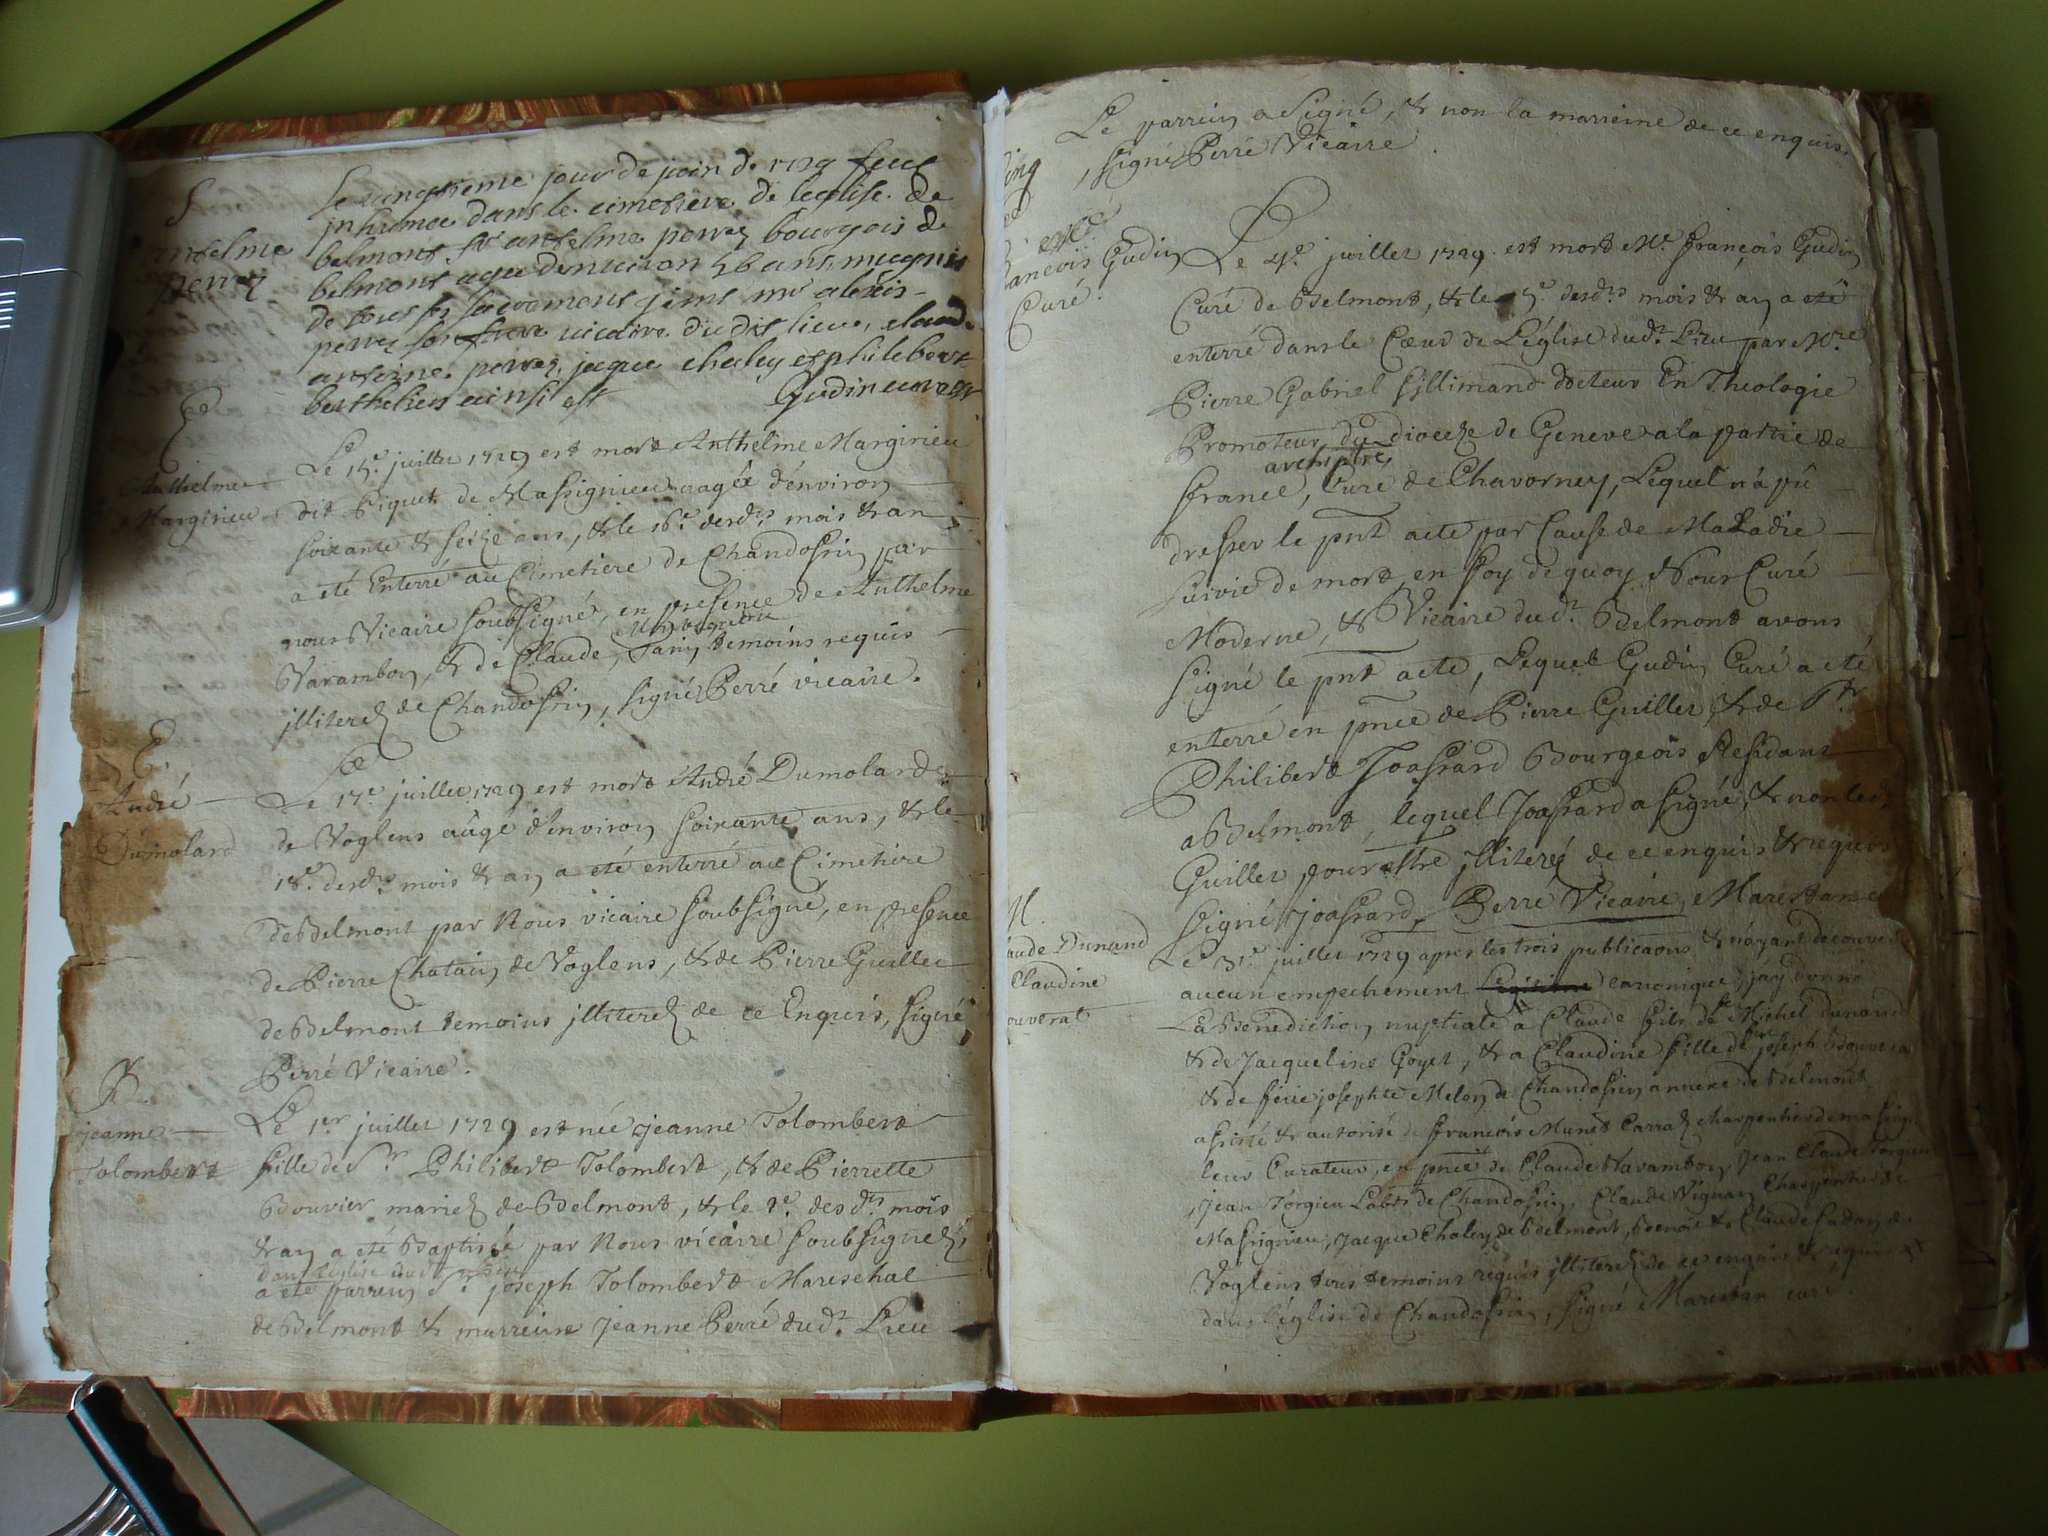 S
anthelme
perrez
Le vingtieme jour de join de 1729 feut
inhumee dans le cimetiere de leglise de
belmont sr anthelme perrez bourgois de
belmont agee denviron 56 ans, mugnis
de tous ses sacrements, mr alexis
perrez son frere vicaire dudit lieu, claude
antoine perrez, jaque chaley et philebert
berthelier ainsi est Gudin cure
E
Anthelme
Marginieu
Le 15e juillet 1729 est mort Anthelme Marginieu
dit Piquet de Massignieu aagée d'environ
soixante & seize ans, & le 16e desdts mois & an
a eté Enterré au Cimetiere de Chandossin par
nous Vicaire soubsigné, en presence de Anthelme
Varambon, & de Claude, Janin temoins requis
illiterez de Chandossin, signé Perré vicaire.
E.
André
Dumolard
Le 17e juillet 1729 est mort André Dumolard
de Voglens aâgé d'environ soixante ans, & le
18e desdts mois & an a eté enterré au Cimetiere
de Belmont par Nous vicaire soubsigné, en presence
de Pierre Chatain de Voglens, & de Pierre Guillet
de Belmont temoins illiterez de ce Enquis, signé
Perré Vicaire.
B.
jeanne
Tolombert
Le 1er juillet 1729 est née jeanne Tolombert
fille de Sr Philibert Tolombert, & de Pierrette
Bouvier mariez de Belmont, & le 2e desdts mois
& an a eté Baptisée par Nous vicaire soubsignez,
dans l'eglise dudt
a eté parrein Sr joseph Tolombert Mareschal
de Belmont & marreine jeanne Perré dudt Lieu
Le parrein a signé, & non la marreine de ce enquis,
signé Perré Vicaire.
François Gudin
Curé.
Le 4e juillet 1729 est mort Mre François Gudin
Curé de Belmont, & le 5e desdts mois & an a eté
enterré dans le Cœur de L'église dudt Lieu par Mre
Pierre Gabriel Sillimand docteur En Theologie
Promoteur du diocese de Geneve a la partie de
france, archiptre, Curé de Chavorney, Lequel n'a pû
dresser le pnt acte par Cause de Maladie
suivie de mort, en foy de quoy Nous Curé
Moderne, & Vicaire dudt Belmont avons
signé le pnt acte, Lequel Gudin Curé a eté
enterré en pnce de Pierre Guillet, & de Sr
Philibert Joassard Bourgeois Residant
a Belmont, lequel Joassard a signé, & non led
Guillet pour etre illiteré de ce enquis & requis
signé Joassard, Perré Vicaire, Marestan c
M.
aude Dunand
Claudine
ouverat
Le 31e juillet 1729 apres les trois publicaons & n'ayant decouvert
aucun empechement canonique, j'ay donné
La Benediction nuptiale a Claude fils de Michel Dunand
& de Jacqueline Goyet, & a Claudine fille de joseph Bouvera
& de feüe josephte Melon de Chandossin annexe de Belmont
assisté & autorisé de François Munet Carraz charpentier de massign
leur Curateur, en pnce de Claude Varambon, Jean Claude Torgieu
jean Torgieu Labrs de Chandossin, Claude Vignan Charpentier de
Massignieu, Jacque Chaley de Belmont, Benoit & Claude Fadan de
Voglens tous temoins requis illiterez de ce enquis & requis
dans l'église de Chandossin, signé Marestan curé.